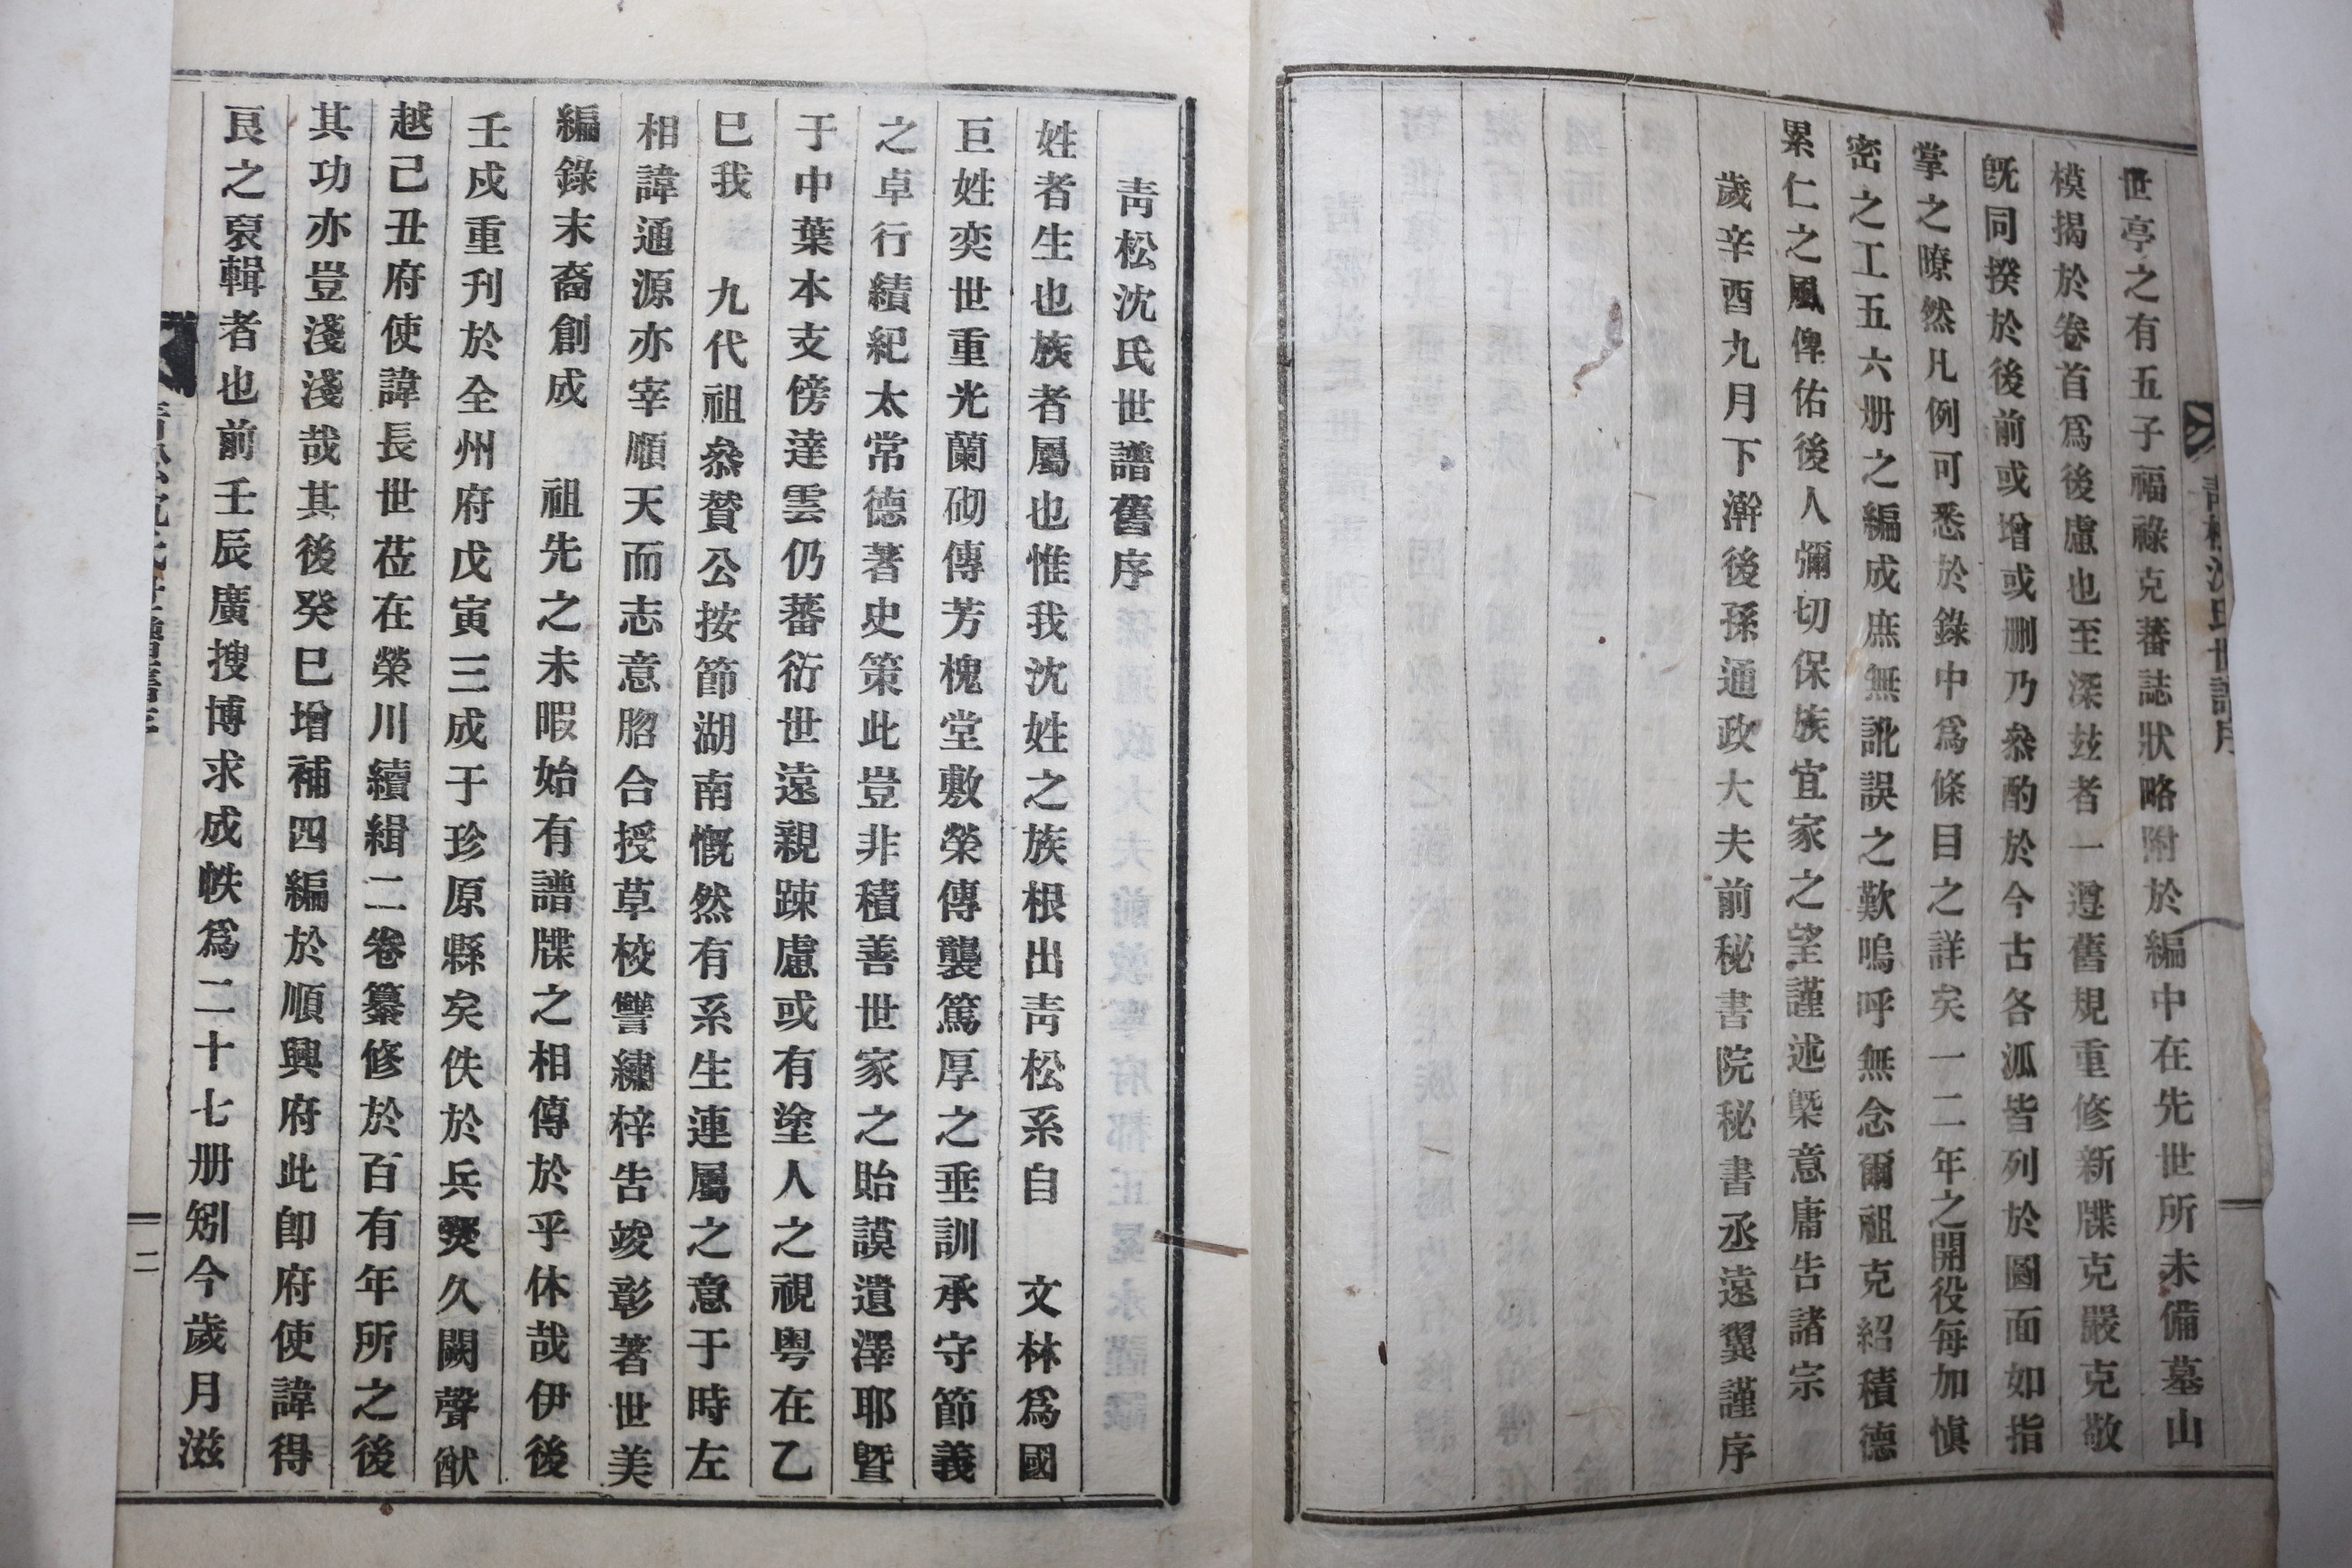 靑松沈氏世譜序
世亭之有五子福祿克蕃誌狀略附於編中在先世所未備墓山
模揭於卷首爲後慮也至深玆者一遵舊規重修新牒克嚴克敬
旣同揆於後前或增或刪乃叅酌於今古各派皆列於圖面如指
掌之暸然凡例可悉於錄中爲條目之詳矣一二年之開役每加愼
密之工五六册之編成庶無訛誤之歎嗚呼無念爾祖克紹積德
累仁之風俾佑後人彌切保族宜家之望謹述槩意庸告諸宗
歲辛酉九月下澣後孫通政大夫前秘書院秘書丞遠翼謹序
靑松沈氏世譜舊序
姓者生也族者屬也惟我沈姓之族根出靑松系自 文林爲國
巨姓奕世重光蘭砌傳芳槐堂敷榮傳襲篤厚之垂訓承守節義
之卓行績紀太常德著史策此豈非積善世家之貽謨遺澤耶曁
于中葉本支傍達雲仍蕃衍世遠親踈慮或有塗人之視粤在乙
巳我 九代祖叅贊公按節湖南慨然有系生連屬之意于時左
相諱通源亦宰順天而志意脗合授草校讐繡梓告竣彰著世美
編錄末裔創成 祖先之未暇始有譜牒之相傳於乎休哉伊後
壬戍重刊於全州府戊寅三成于珍原縣矣佚於兵燹久闕聲猷
越己丑府使諱長世莅在榮川續緝二卷纂修於百有年所之後
其功亦豈淺淺哉其後癸巳增補四編於順興府此卽府使諱得
良之裒輯者也前壬辰廣搜博求成帙爲二十七册矧今歲月滋
靑松沈氏世譜舊序
二